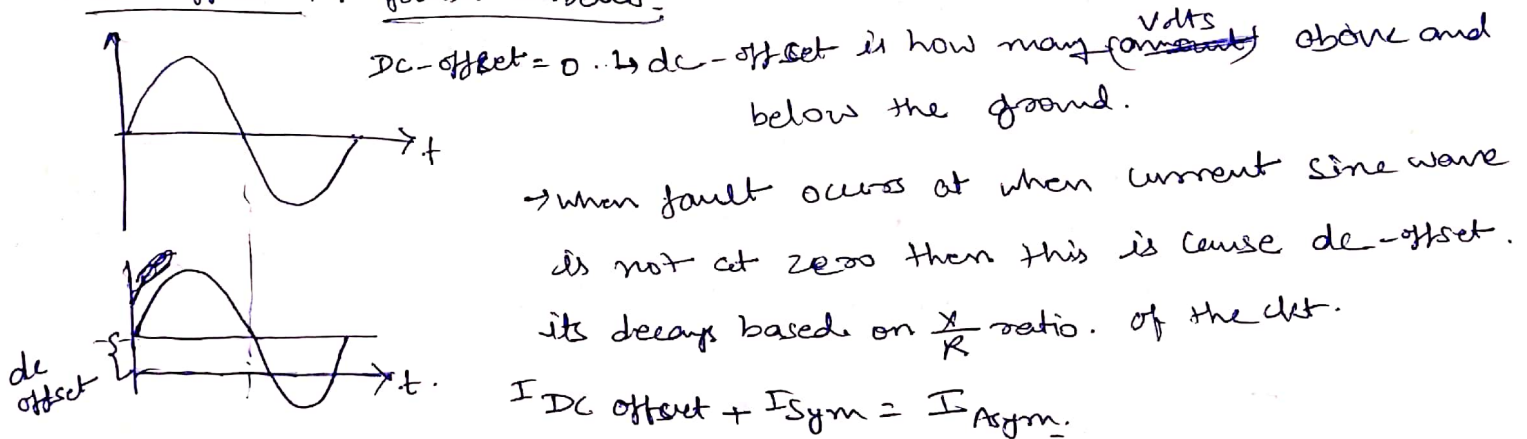 DC-offset = 0 .. ↳ dc-offset is how many volts above and
below the ground.
t
→ when fault occurs at when current sine wave
is not at zero then this is cause dc-offset.
its decays based on X/R ratio. of the ckt.
dc
offset
t.
I DC offset + I Sym = I Asym.